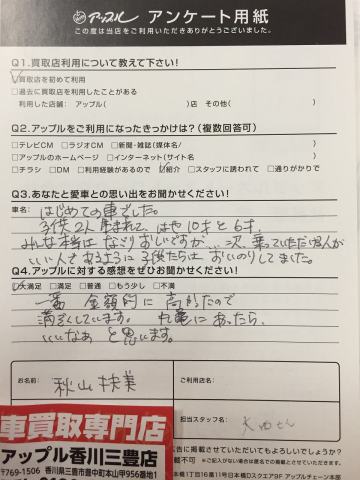 アップル アンケート用紙
この度は当店をご利用いただきありがとうございました。
Q1.買取店利用について教えて下さい!
☑買取店を初めて利用
□過去に買取店を利用したことがある
利用した店舗: アップル( )店 その他( )
Q2.アップルをご利用になったきっかけは?(複数回答可)
□テレビCM □ラジオCM □新聞・雑誌(媒体名/ )
□アップルのホームページ □インターネット(サイト名 )
□チラシ □DM □利用経験があるので ☑紹介 □スタッフに誘われて □通りがかりで
Q3.あなたと愛車との思い出をお聞かせください!
車名: はじめての車でした。
子供2人産まれて、はや10才と6才、
みんな本当は なごりおしいですが、次、乗っていただく方が
いい人であるように子供たちとおいのりしてました。
Q4.アップルに対する感想をぜひお聞かせください!
☑大満足 □満足 □普通 □もう少し □不満
一番 金額的に 高かったので
満足しています。 丸亀にあったら、
いいなぁ と思います。
お名前: 秋山 扶美
ご利用店名:
担当スタッフ名:
車買取専門店
アップル香川三豊店
〒769-1506 香川県三豊市豊中町本山甲956番地1
広告に掲載させていただいてもよろしいでしょうか?
掲載不可 ※ご記入がない場合は匿名での掲載とさせていただきます。
日本橋1丁目16番11号日本橋Dスクエア9F アップルチェーン本部